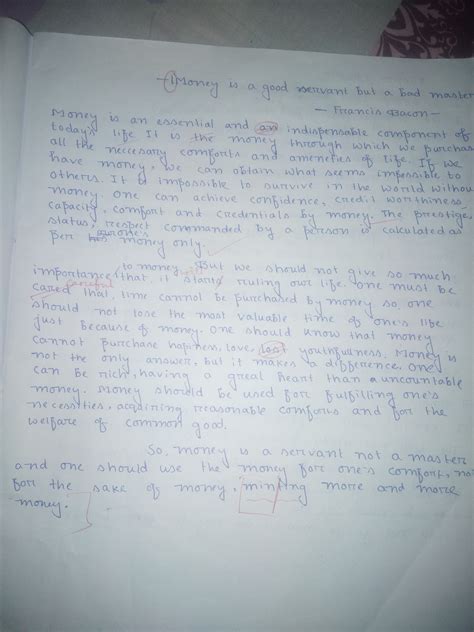 Money is a good servant but a bad master
— Francis Bacon —
Money is an essential and an indispensable component of
today's life. It is the money through which we purchase
all the necessary comforts and amenities of life. If we
have money, we can obtain what seems impossible to
others. It is impossible to survive in the world without
money. One can achieve confidence, credit worthiness
capacity, comfort and credentials by money. The prestige
status, respect commanded by a person is calculated as
per one's money only.
to money
But we should not give so much
importance that, it starts ruling our life. One must be
careful
cared that, time cannot be purchased by money so, one
should not lose the most valuable time of one's life
just because of money. One should know that money
cannot purchase happiness, love, lost youthfulness. Money is
not the only answer, but it makes a difference. One
can be rich, having a great heart than a uncountable
money. Money should be used for fulfilling one's
necessities, acquiring reasonable comforts and for the
welfare of common good.
So, money is a servant not a master
and one should use the money for one's comfort, not
for the sake of money, minting more and more
money.